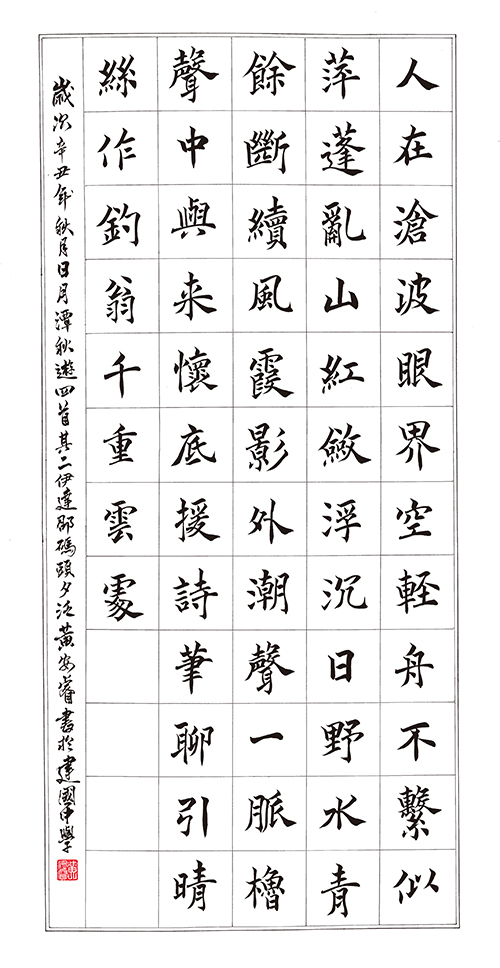 人在滄波眼界空輕舟不繫似
萍蓬亂山紅斂浮沉日野水青
餘斷續風霞影外潮聲一脈櫓
聲中與来懷底援詩筆聊引晴
絲作釣翁千重雲處
歲次辛丑年秋月日月潭秋遊四首其二伊達邵碼頭夕泛黃安睿書於建國中學